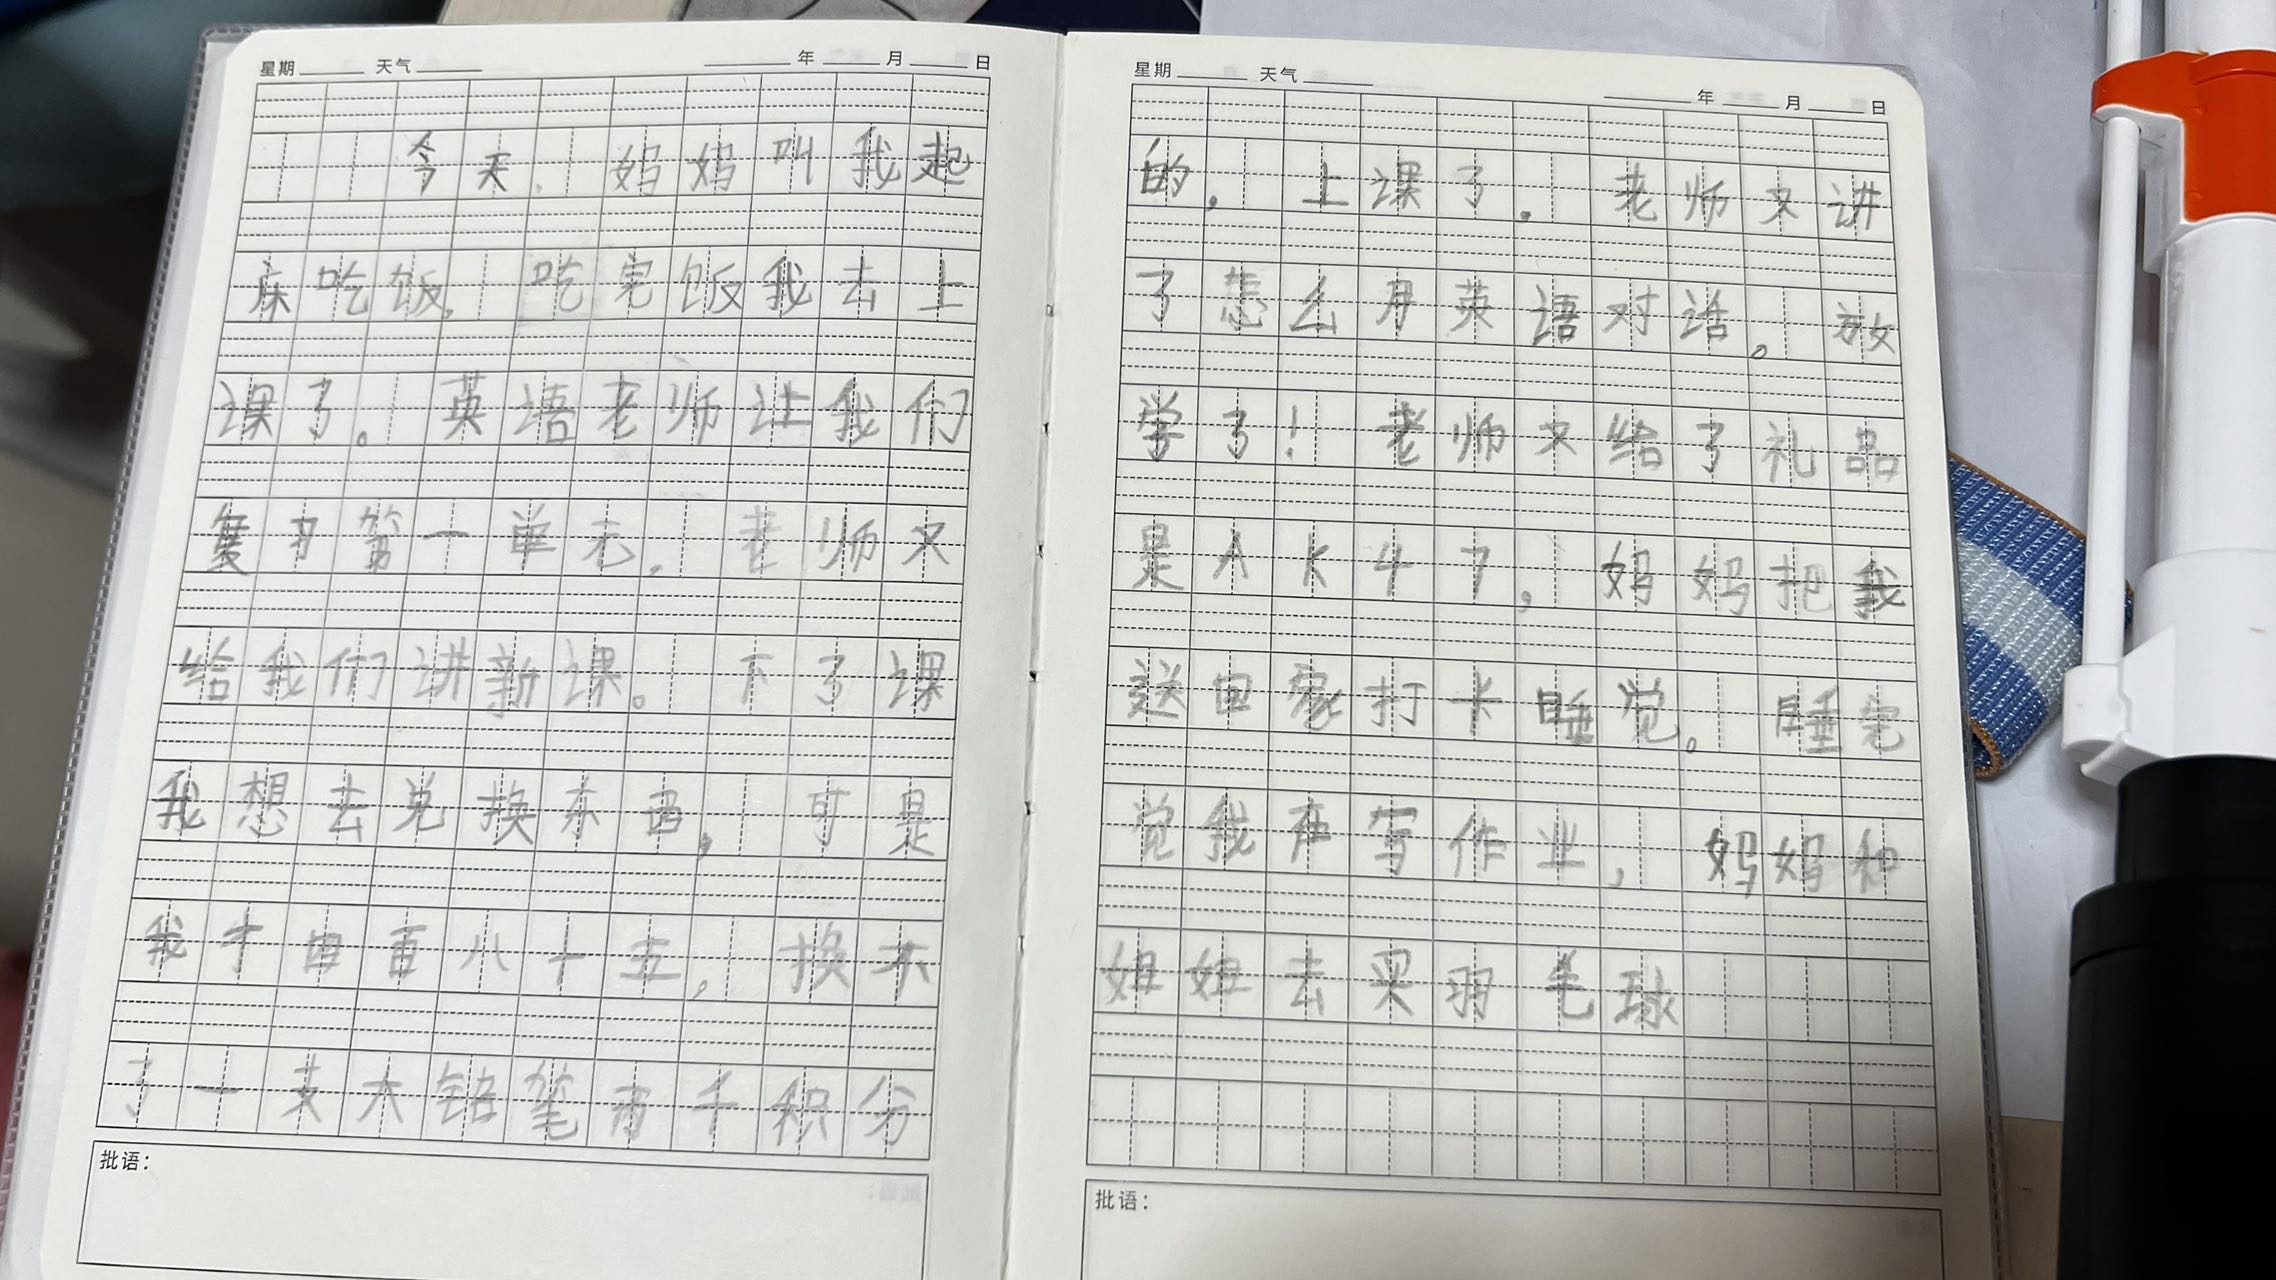 星期 天气 年 月 日
今天，妈妈叫我起
床吃饭，吃完饭我去上
课了。英语老师让我们
复习第一单元，老师又
给我们讲新课。下了课
我想去兑换东西，可是
我才四百八十五，换不
了一支大铅笔两千积分
批语：
星期 天气 年 月 日
的，上课了。老师又讲
了怎么用英语对话。放
学了！老师又给了礼品
是AK47，妈妈把我
送回家打卡睡觉。睡完
觉我在写作业，妈妈和
妞妞去买羽毛球
批语：